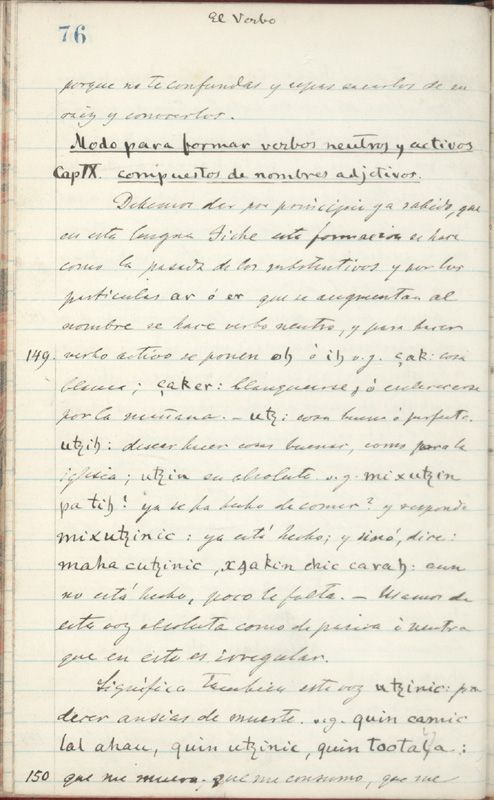 El Verbo
76
porque no te confundas y sepas sacarlos de su
raiz y conocerlos.
Modo para formar verbos neutros y activos
Cap IX. compuestos de nombres adjetivos.
Debemos dar por principio ya sabido, que
en esta lengua Tiche esta formacion se hace
como la pasada de los substantivos y por las
particulas ar ó er que se augmentan al
nombre se hace verbo neutro, y para hacer
149. verbo activo se ponen oh ó ih v.g. çak: cosa
blanca; çaker: blanquearse, ó
por la mañana. – utz: cosa buena ó perfecta.
utzih: desear hacer cosas buenas, como para la
iglesia; utzin su absoluto v.g. mixutzin
pa tih? ya se ha hecho de comer? y responde
mixutzinic: ya está hecho; y sinó, dice:
maha cutzinic, xɜakin chic carah: aun
no está hecho, poco le falta. – Usamos de
esta voz absoluta como de pasiva ó neutra
que en esto es irregular.
Significa tambien esta voz utzinic: pa-
decer ansias de muerte. v.g. quin camic
lal ahau, quin utzinic, quin tootaya:
150 que me muero. que me consumo, que me